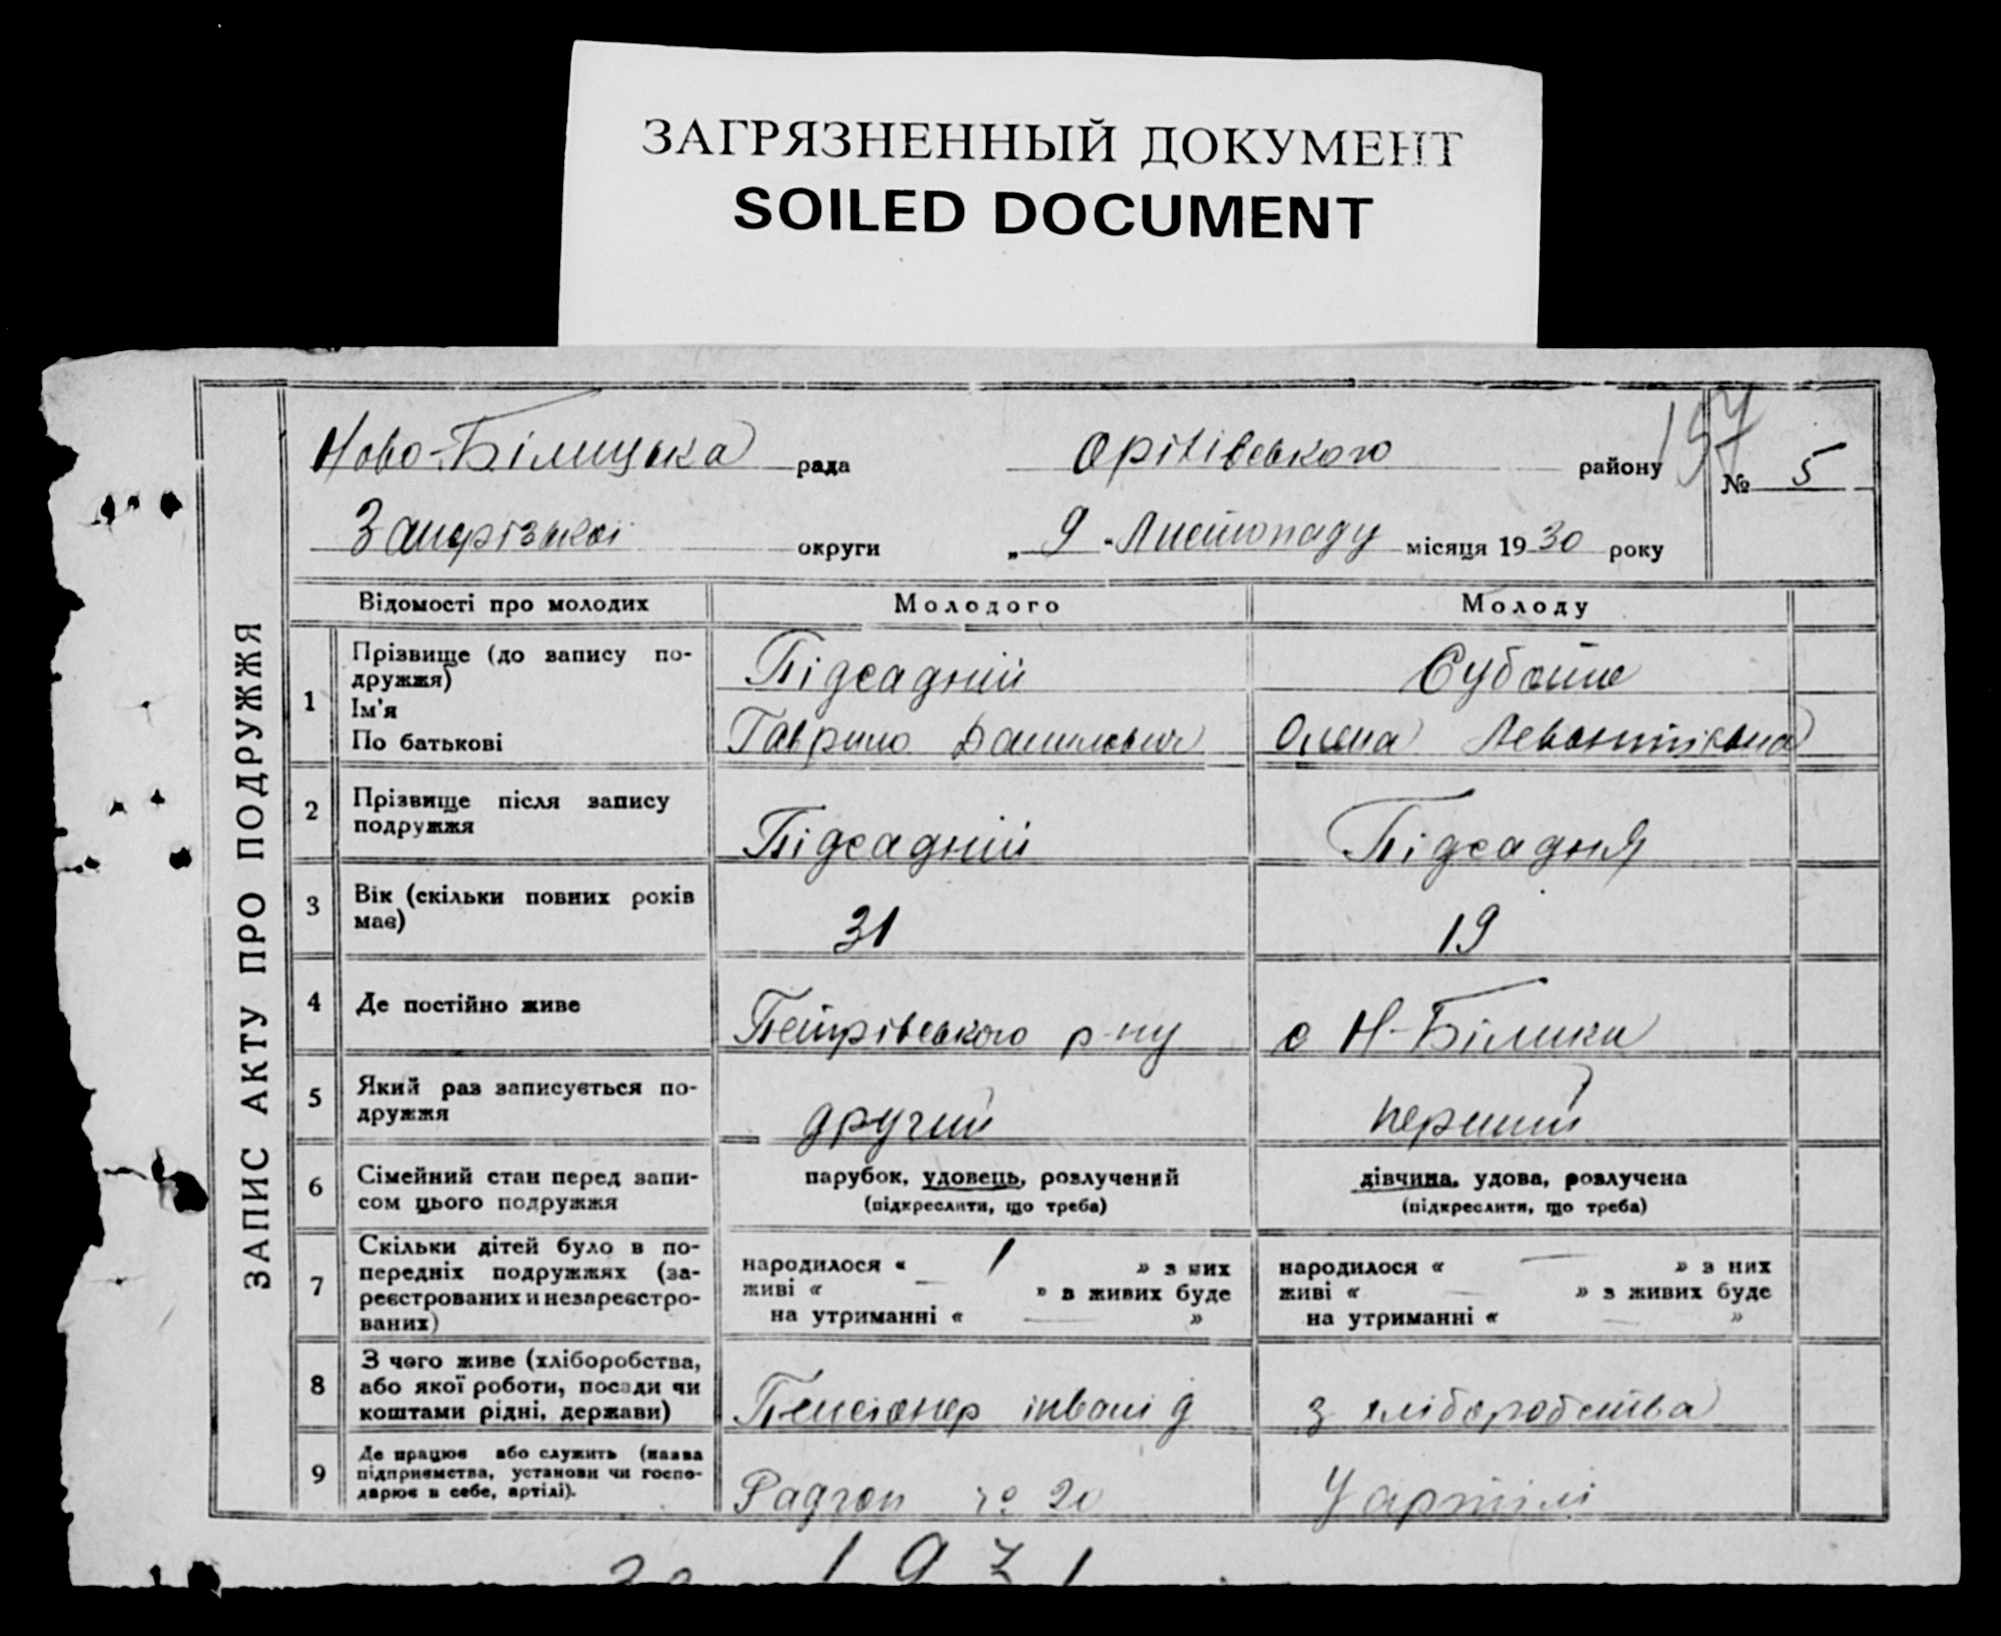 ЗАГРЯЗНЕННЫЙ ДОКУМЕНТ
SOILED DOCUMENT
ЗАПИС АКТУ ПРО ПОДРУЖЖЯ
Ново-Білицька рада Оріхівського району 197 № 5
округи „ 9 " Листопаду місяця 1930 року
Відомості про молодих Молодого Молоду
1 Прізвище (до запису по-
дружжя) Підсадній
Ім'я
По батькові Гаврило Данилович Олена
2 Прізвище після запису
подружжя Підсадній Підсадня
3 Вік (скільки повних років
має) 31 19
4 Де постійно живе Петрівського р-ну с Н-Білики
5 Який раз записується по-
дружжя другий перший
6 Сімейний стан перед запи-
сом цього подружжя
парубок, удовець, розлучений
(підкреслити, що треба)
дівчина, удова, розлучена
(підкреслити, що треба)
7 Скільки дітей було в по-
передніх подружжях (за-
реєстрованих и незареєстро-
ваних)
народилося « 1 » з них
живі « — » з живих буде
на утриманні « — »
народилося « — » з них
живі « — » з живих буде
на утриманні « — »
8 З чого живе (хліборобства,
або якої роботи, посади чи
коштами рідні, держави) Пенсіонер інвалід з хліборобства
9 Де працює або служить (назва
підприємства, установи чи госпо-
дарює в себе, артілі). Радгоп № 20 У артілі
1931